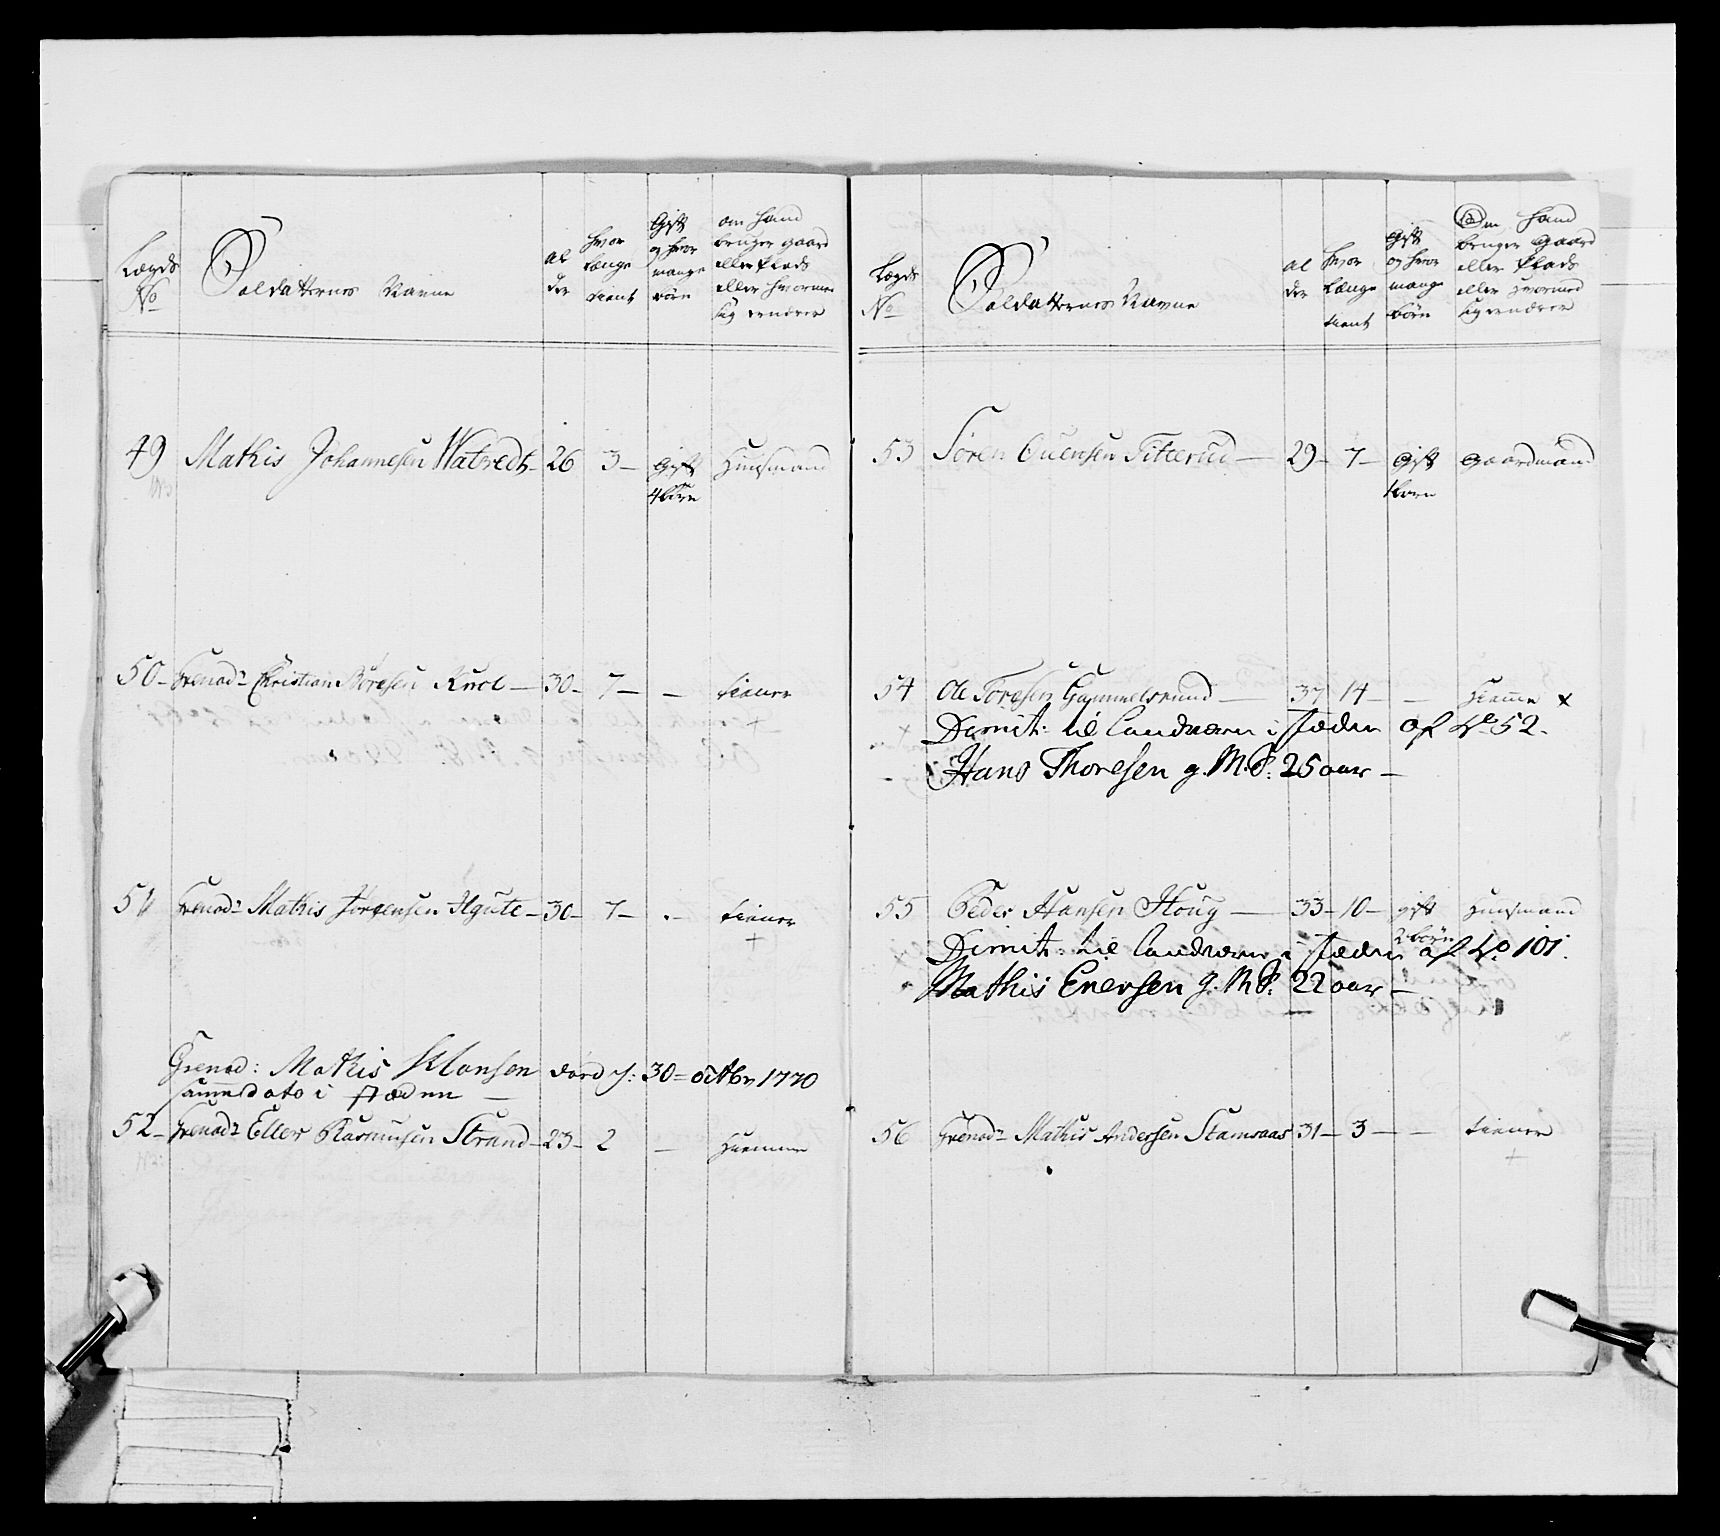 Lægds No
Soldatternes Navne
al der
hvor længe tient
Gift og hvor mange børn
om hand bruger gaard eller Plads eller hvormed sig ernærer
49 Mathis Johannesen Watvedt 26 3 Gift 4 børn Huusmand
50 Grenad: Christian Boresen Knol 30 7 — tiener
51 Grenad: Mathis Jørgensen 30 7 — tiener
Grenad: Mathis Monsen død d: 30 octbr 1770
samme dato i stæden
52 Grenad: Eller Rasmusen Strand 23 2 — Hiemme
Lægds No
Soldatternes Navne
al der
hvor længe tient
gift og hvor mange børn
Om hand bruger Gaard eller Plads eller hvormed sig ernærer
53 Søren Ouensen Titterud 29 7 Gift 1 barn Gaardmand
54 Ole Toresen Gammelsrund 37 14 — Hieme x
Dimit: til Landværn i stæden af No 52.
Hans Thoresen g. M.S: 25 aar —
55 Peder Hansen Houg 33 10 gift 2 børn Huusmand
Dimit: til Landværn i stæden af No 101.
Mathis Enersen g. M S: 22 aar —
56 Grenad: Mathis Andersen Stamsaas 31 3 — tiener